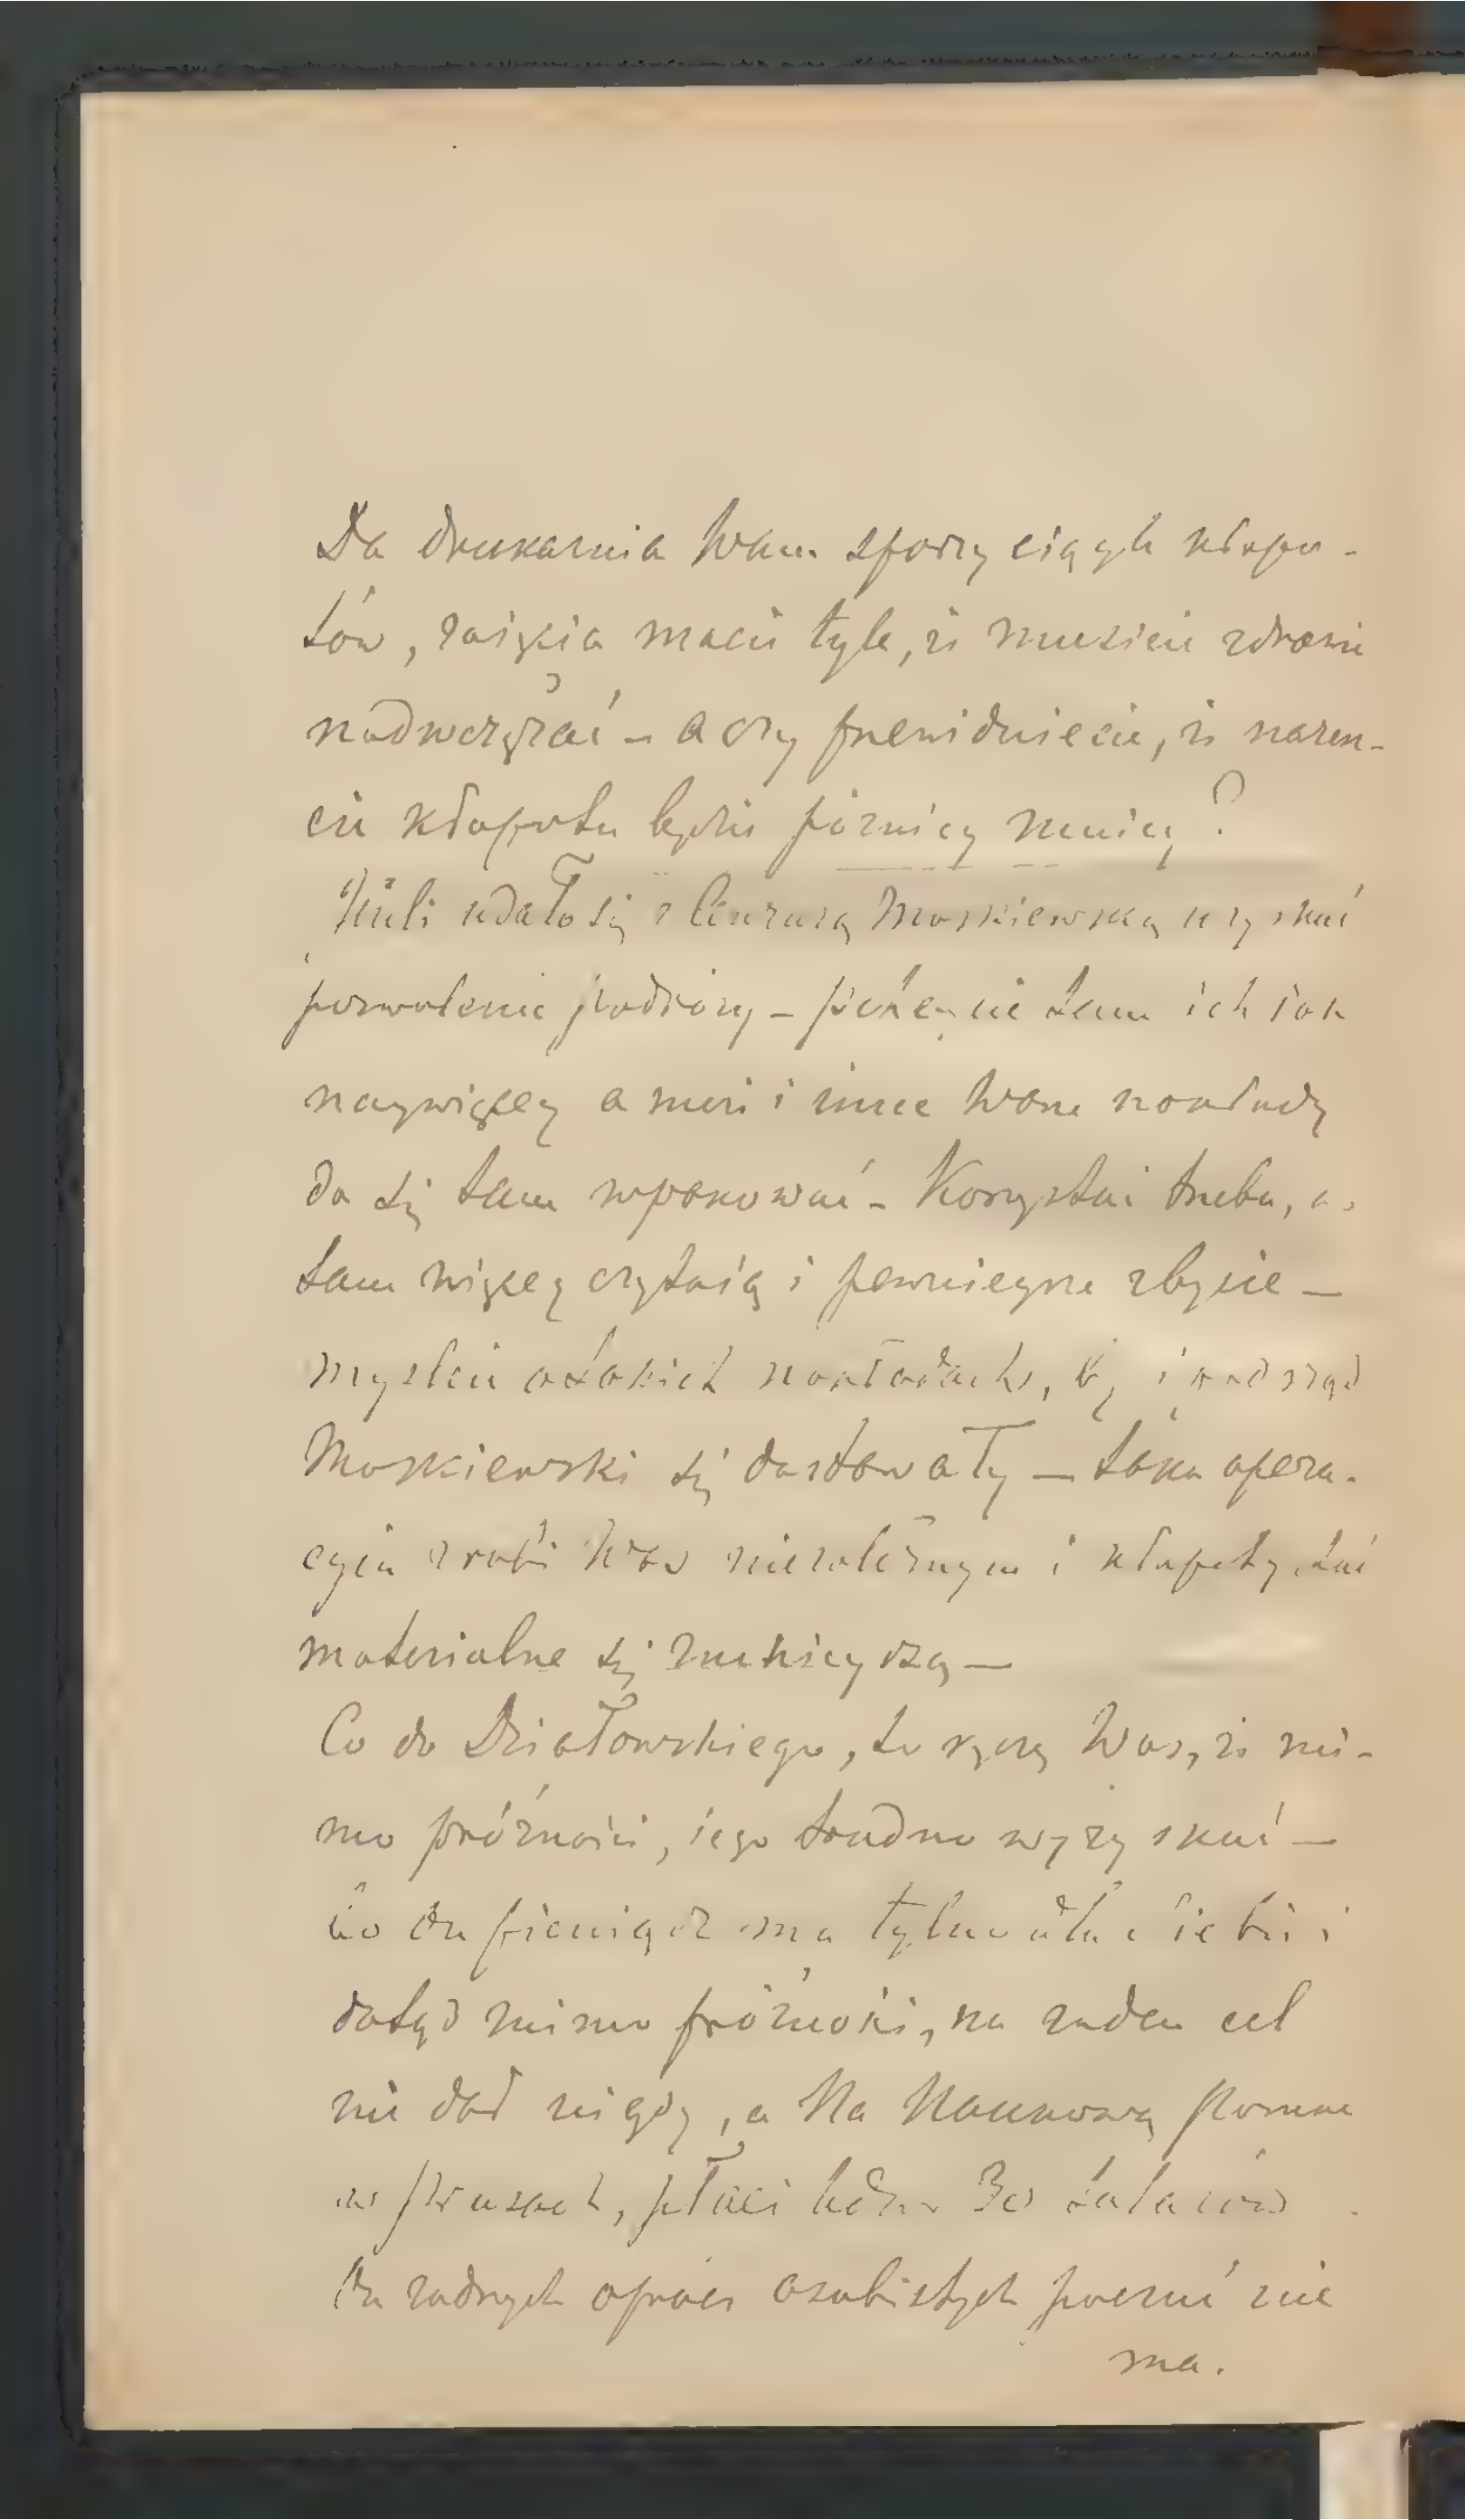 Da drukarnia Wam spory ciągle kłopo-
tów, zaięcia macie tyle, iż musicie zdrowie
nadwerężać – a czy przewidziecie, iż naresz-
cie kłopotu będzie późniey mniey?
Jeśli udało się z Cenzurą Moskiewską uzyskać
pozwolenie – tam ich iak
naywięcey a może i inne Wasze nakłady
da się tam wpakować – Korzystać trzeba,
tam więcey czytaią i pewnieysze zbycie –
myślcie o takich nakładach, by i pod rząd
Moskiewski się dostawały – taka opera-
cyia zrobi Was niezależnym i kłopoty
materialne się zmnieyszą –
Co do Działowskiego, to ręczę Was, iż mi-
mo próżności, iego trudno wyzyskać –
bo on pieniądz ma tylko dla siebie i
dotąd mimo próżności, na żaden cel
nie dał nigdy, a Na Naukową Pomoc
w Prusach, płaci ledwo 30 talarów
On żadnych oprócz osobistych poczuć nie
ma.